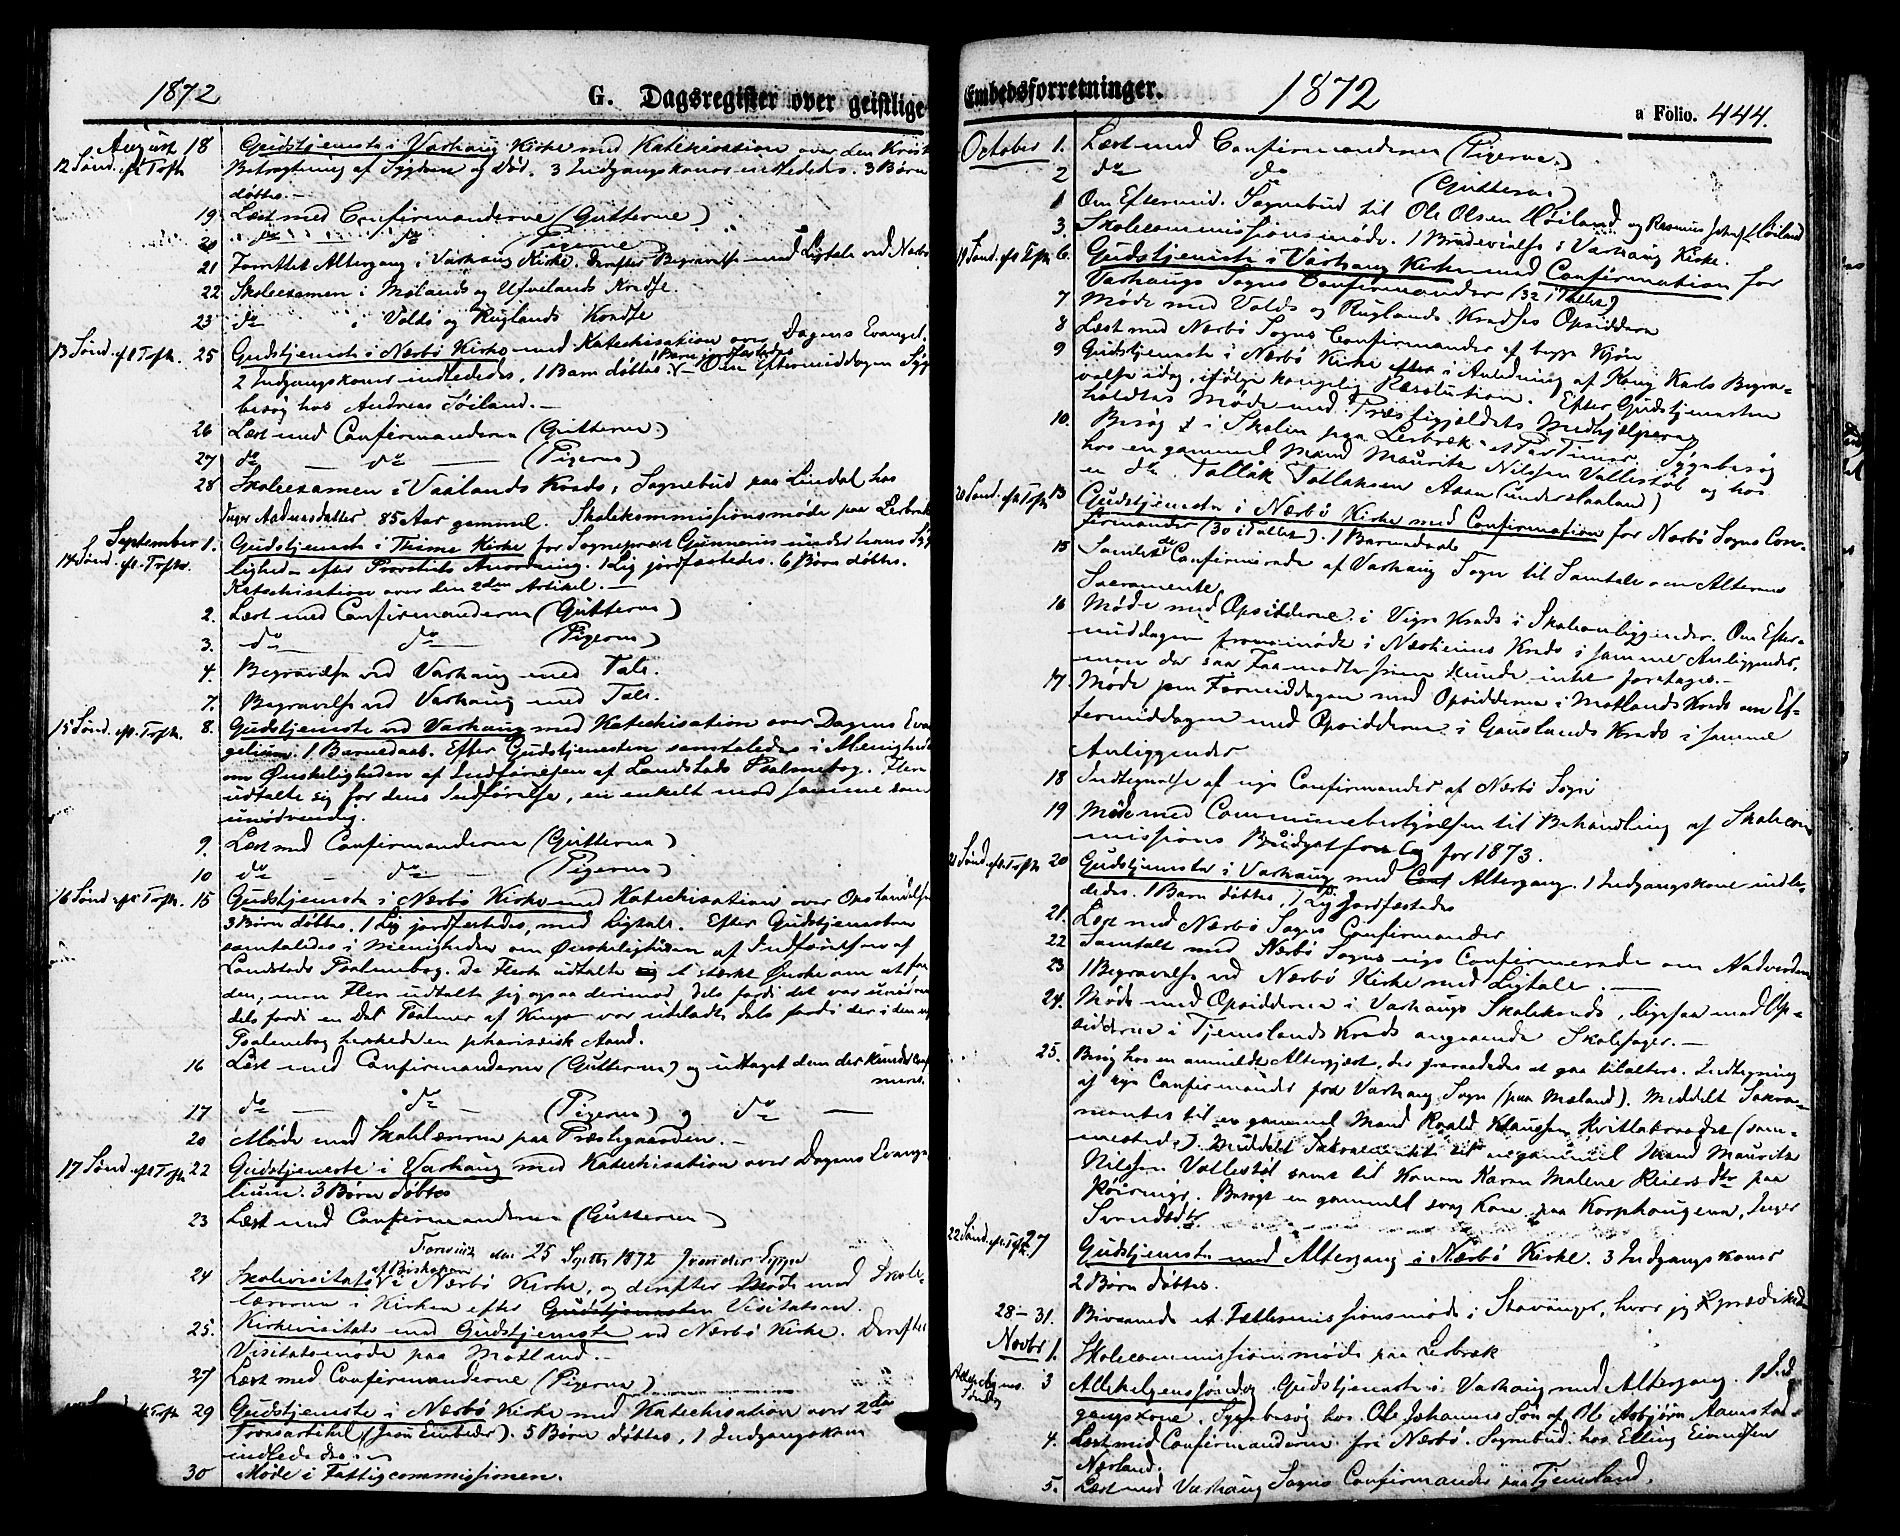 1872
G. Dagsregister over geistlige
August 18 Gudstjeneste i Varhaug Kirke med Katekisation over den Kristnes
12 Sønd. eft. Trefh. Betragtning af Sygdom og Død. 3 Indgangskoner indlededes. 3 Børn
døbtes.
19 Læst med Confirmanderne (Gutterne)
20 do do (Pigerne)
21 Forrettet Altergang i Varhaug Kirke, derefter Begravelse med Ligtale ved Nærbø
22 Skoleexamen i Mølands og Ufvilands Kredse.
23 do i Volds og Ruglands Kredse
13 Sønd. eft. Trefh. 25 Gudstjeneste i Nærbø Kirke med Katechisation over Dagens Evangel.
2 Indgangskoner indlededes, 1 Barn døbtes, 1 Barn jordfæstedes. Om Eftermiddagen Syg-
besøg hos Andreas Søiland.
26 Læst med Confirmanderne (Gutterne)
27 do do (Pigerne)
28 Skoleexamen i Varlands Kreds, Sognebud paa Lindal hos
Inger Aadnesdatter 85 Aar gammel. Skolekommissionsmøde paa Lerbrek
September 1. Gudstjeneste i Thime Kirke for Sognepræst Gunnerius under hans Syg-
14 Sønd. eft. Trefh. lighed efter Provstiets Anordning. 1 Lig jordfæstedes. 6 Børn døbtes.
Katechisation over den 2den Artikel.
2. Læst med Confirmanderne (Gutterne)
3. do do (Pigerne)
4. Begravelse ved Varhaug med Tale.
7. Begravelse ved Varhaug med Tale.
15 Sønd. eft. Trefh. 8. Gudstjeneste ved Varhaug med Katechisation over Dagens Evan-
gelium. 1 Barnedaab. Efter Gudstjenesten samtaledes i Menigheden
om Ønskeligheden af Indførelsen af Landstads Psalmebog. Flere
udtalte sig for dens Indførelse, en enkelt mod samme som
unødvendig.
9. Læst med Confirmanderne (Gutterne)
10 do do (Pigerne)
16 Sønd. eft. Trefh. 15 Gudstjeneste i Nærbø Kirke med Katechisation over Opstandelsen
3 Børn døbtes. 1 Lig jordfæstedes, med Ligtale. Efter Gudstjenesten
samtaledes i Menigheden om Ønskeligheden af Indførelsen af
Landstads Psalmebog. De Fleste udtalte et stærkt Ønske om at faa
den, men Flere udtalte sig ogsaa derimod, dels fordi det var unødven
dels fordi en Del Psalmer af Kingo var udeladt, dels fordi der i den ny
Psalmebog herskede en pharisæisk Aand.
16 Læst med Confirmanderne (Gutterne) og udtaget dem der kunde Confir-
meres.
17 do do (Pigerne) og do
20 Møde med Skolelærerne paa Præstegaarden.
17 Sønd. eft. Trefh. 22 Gudstjeneste i Varhaug med Katechisation over Dagens Evange-
lium. 3 Børn døbtes
23 Læst med Confirmanderne (Gutterne)
den 25 Septbr 1872
24 Skolevisitats af Biskopen i Nærbø Kirke, og derefter Møde med Skole-
lærerne i Kirken efter Gudstjenesten Visitatsen.
25. Kirkevisitats med Gudstjeneste ved Nærbø Kirke. Derefter
Visitatsmøde paa Motland.
27 Læst med Confirmanderne (Pigerne)
29 Gudstjeneste i Nærbø Kirke med Katechisation over 2den
Troesartikel (Jesu Embeder). 5 Børn døbtes, 1 Indgangskone
indlededes.
30 Møde i Fattigcommissionen.
Embedsforretninger. 1872
a Folio. 444.
October 1. Læst med Confirmanderne (Pigerne.)
2 do do (Gutterne)
1 Om Eftermid. Sognebud til Ole Olsen Høiland og Rasmus Høiland
3. Skolecommissionsmøde. 1 Brudevielse i Varhaug Kirke.
19 Sønd. eft. Trefh. 6. Gudstjeneste i Varhaug Kirke med Confirmation for
Varhaugs Sogns Confirmander (32 i Tallet)
7 Møde med Volds og Ruglands Kredses Opsiddere
8 Læst med Nærbø Sogns Confirmander af begge Kjøn
9 Gudstjeneste i Nærbø Kirke i Anledning af Kong Karls Begra-
velse idag, ifølge kongelig Resolution. Efter Gudstjenesten
holdtes Møde med Præstegjældets Medhjælpere
10. Besøg i Skolen paa Lerbræk et Par Timer. Sygebesøg
hos en gammel Mand Mauritz Nilssen Vallestøl og hos
en do Tollak Tollaksen Aase (under Haaland)
20 Sønd. eft. Trefh. 13 Gudstjeneste i Nærbø Kirke med Confirmation for Nærbø Sogns Con-
firmander (30 i Tallet). 1 Barnedaab
15 Samlet de Confirmerede af Varhaug Sogn til Samtale om Alterens
Sacramente.
16 Møde med Opsidderne i Vigre Kreds i Skoleanliggender. Om Efter-
middagen fremmøde i Nærheims Kreds i samme Anliggender,
men der saa Faa mødte frem kunde intet foretages.
17. Møde om Formiddagen med Opsidderne i Motlands Kreds om Ef-
termiddagen med Opsidderne i Gauslands Kreds i samme
Anliggender
18 Indtegnelse af nye Confirmander af Nærbø Sogn
19 Møde med Communebestyrelsen til Behandling af Skolecom-
missions Budget for 1873.
21 Sønd. eft. Trefh. 20 Gudstjeneste i Varhaug med Altergang. 1 Indgangskone indle-
dedes. 1 Barn døbtes, 1 Lig jordfæstedes
21. Læst med Nærbø Sogns Confirmander
22 Samtalt med Nærbø Sogns nye Confirmerede om Nadverden
23 1 Begravelse ved Nærbø Kirke med Ligtale.
24. Møde med Opsidderne i Varhaugs Skolekreds, ligesaa med Op-
sidderne i Tjemslands Kreds angaaende Skolesager.
25. Besøg hos en anmeldt Altergjæst, der fraraadedes at gaa til alters. Indtegning
af nye Confirmander fra Varhaug Sogn (paa Mæland). Meddelt Sakra-
mentet til en gammel Mand Roald Klausen Kvitlaksraadet (sam-
mesteds). Meddelt Sakramentet til en gammel Mand Mauritz
Nilssen Vallestøl samt til Konen Karen Malene Reiersdtr paa
Røisnigs. Besøgt en gammel svag Kone paa Korphougene, Inger
Svendsdtr
22 Sønd. eft. Trefh. 27 Gudstjeneste med Altergang i Nærbø Kirke. 3 Indgangskoner
2 Børn døbtes.
28-31. Bivaanede et Fællesmissionsmøde i Stavanger, hvor jeg prædikede
Novbr 1. Skolecommissionsmøde paa Lerbræk
Allehelgens Søndag 3 Allehelgenssøndag. Gudstjeneste i Varhaug med Altergang. 1 Ind-
gangskone, Sygebesøg hos Ole Johannes Søn af Ole Asbjørn Aamstad.
4. Læst med Confirmanderne fra Nærbø. Sognebud hos Elling Eivindsen
Nærland.
5. Læst med Varhaug Sogns Confirmander paa Tjemsland.